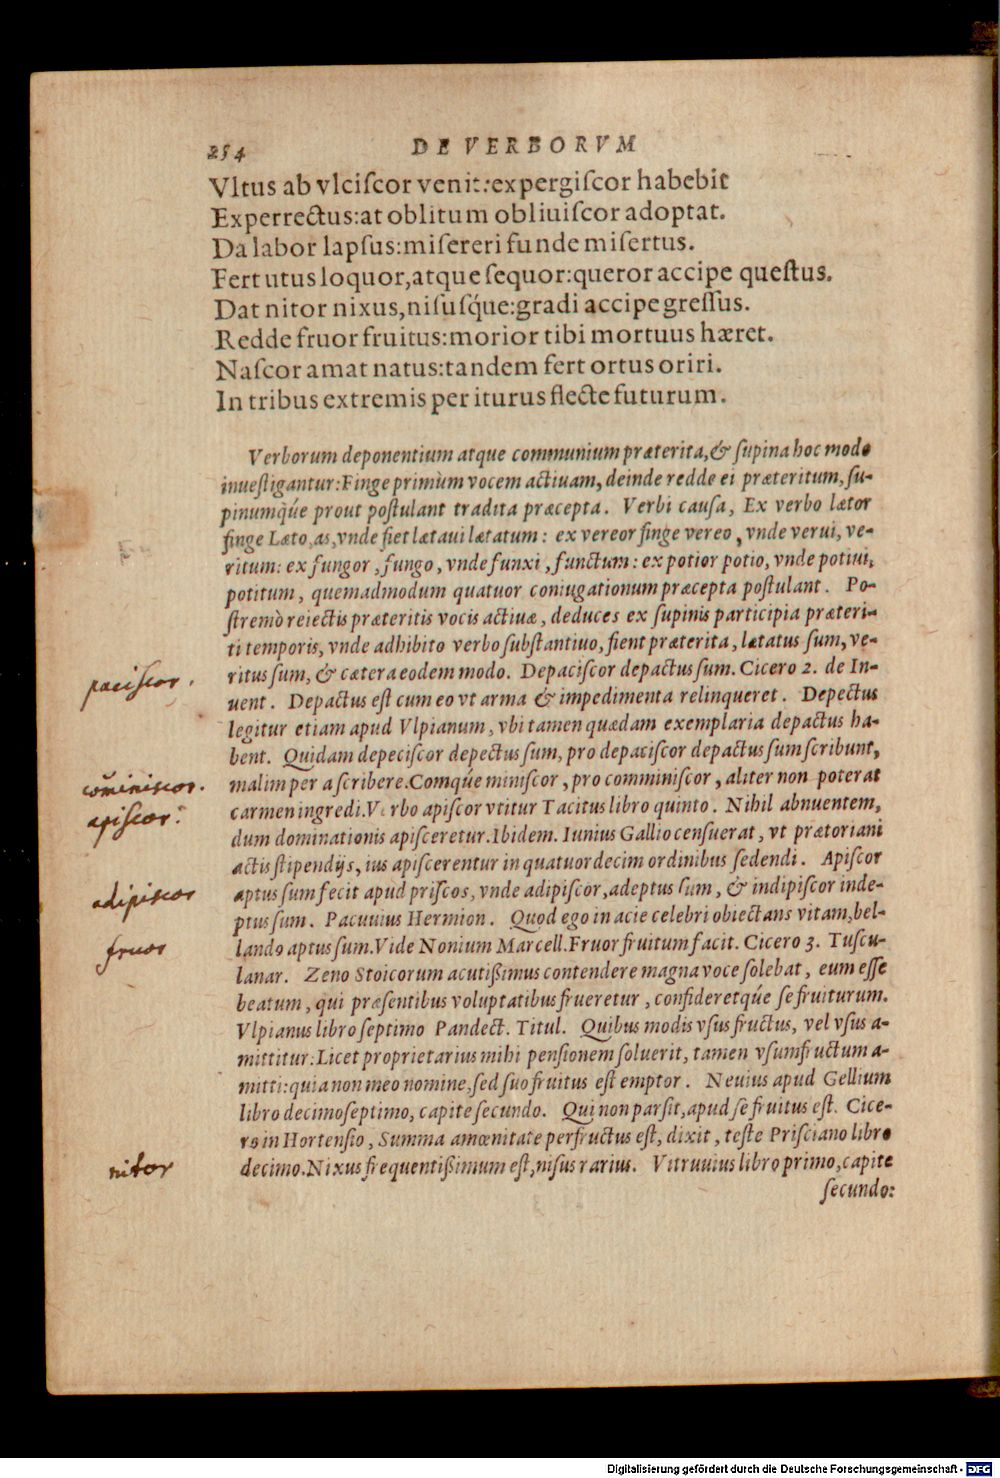 254 DE VERBORVM
Vltus ab vlciſcor venit: expergiſcor habebit
Experrectus: at oblitum obliuiſcor adoptat.
Da labor lapſus: miſereri funde miſertus.
Fert utus loquor, atque ſequor: queror accipe queſtus.
Dat nitor nixus, niſuſq́ue: gradi accipe greſſus.
Redde fruor fruitus: morior tibi mortuus hæret.
Naſcor amat natus: tandem fert ortus oriri.
In tribus extremis per iturus flecte futurum.
Verborum deponentium atque communium præterita, & ſupina hoc modo
inueſtigantur: Finge primùm vocem actiuam, deinde redde ei præteritum, ſu-
pinumq́ue prout poſtulant tradita præcepta. Verbi cauſa, Ex verbo lætor
finge Læto, as, vnde fiet lætaui lætatum: ex vereor finge vereo, vnde verui, ve-
ritum: ex fungor, fungo, vnde funxi, functum: ex potior potio, vnde potiui,
potitum, quemadmodum quatuor coniugationum præcepta poſtulant. Po-
ſtremò reiectis præteritis vocis actiuæ, deduces ex ſupinis participia præteri-
ti temporis, vnde adhibito verbo ſubſtantiuo, fient præterita, lætatus ſum, ve-
ritus ſum, & cætera eodem modo. Depaciſcor depactus ſum. Cicero 2. de In-
paciſcor.
uent. Depactus eſt cum eo vt arma & impedimenta relinqueret. Depectus
legitur etiam apud Vlpianum, vbi tamen quædam exemplaria depactus ha-
bent. Quidam depeciſcor depectus ſum, pro depaciſcor depactus ſum ſcribunt,
com̃iniscor.
malim per a ſcribere. Comq́ue miniſcor, pro comminiſcor, aliter non poterat
apiſcor:
carmen ingredi. Verbo apiſcor vtitur Tacitus libro quinto. Nihil abnuentem,
dum dominationis apiſceretur. Ibidem. Iunius Gallio cenſuerat, vt prætoriani
actis ſtipendijs, ius apiſcerentur in quatuordecim ordinibus ſedendi. Apiſcor
adipiscor
aptus ſum fecit apud priſcos, vnde adipiſcor, adeptus ſum, & indipiſcor inde-
ptus ſum. Pacuuius Hermion. Quod ego in acie celebri obiectans vitam, bel-
fruor
lando aptus ſum. Vide Nonium Marcell. Fruor fruitum facit. Cicero 3. Tuſcu-
lanar. Zeno Stoicorum acutißimus contendere magna voce ſolebat, eum eſſe
beatum, qui præſentibus voluptatibus frueretur, confideretq́ue ſe fruiturum.
Vlpianus libro ſeptimo Pandect. Titul. Quibus modis vſus fructus, vel vſus a-
mittitur: Licet proprietarius mihi penſionem ſoluerit, tamen vſumfructum a-
mitti: quia non meo nomine, ſed ſuo fruitus eſt emptor. Neuius apud Gellium
libro decimoſeptimo, capite ſecundo. Qui non parſit, apud ſe fruitus eſt. Cice-
ro in Hortenſio, Summa amœnitate perfructus eſt, dixit, teſte Priſciano libro
nitor
decimo. Nixus frequentißimum eſt, niſus rarius. Vitruuius libro primo, capite
ſecundo:
Digitalisierung gefördert durch die Deutsche Forschungsgemeinschaft - DFG